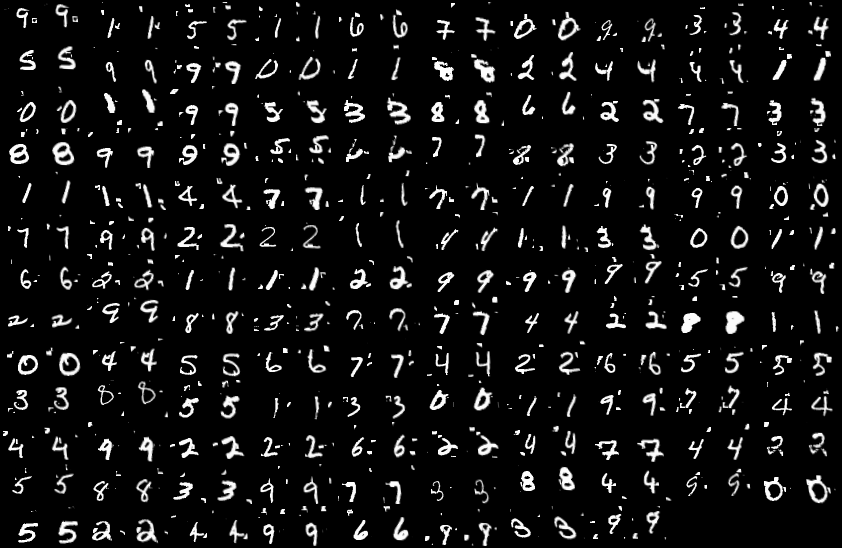 9 9 1 1 5 5 1 1 6 6 7 7 0 0 9 9 3 3 4 4
5 5 9 9 9 9 0 0 1 1 8 8 2 2 4 4 4 4 1 1
0 0 1 1 9 9 5 5 3 3 8 8 6 6 2 2 7 7 3 3
8 8 9 9 9 9 5 5 6 6 7 7 8 8 3 3 2 2 3 3
1 1 1 1 4 4 7 7 1 1 7 7 1 1 9 9 9 9 0 0
7 7 9 9 2 2 2 2 1 1 4 4 1 1 3 3 0 0 1 1
6 6 2 2 1 1 1 1 2 2 9 9 9 9 9 9 5 5 9 9
2 2 9 9 8 8 3 3 7 7 7 7 4 4 2 2 8 8 1 1
0 0 4 4 5 5 6 6 7 7 4 4 2 2 6 6 5 5 5 5
3 3 8 8 5 5 1 1 3 3 0 0 1 1 9 9 7 7 4 4
4 4 9 9 2 2 2 2 6 6 2 2 4 4 7 7 4 4 2 2
5 5 8 8 3 3 9 9 7 7 3 3 8 8 4 4 9 9 0 0
5 5 2 2 4 4 9 9 6 6 9 9 3 3 9 9